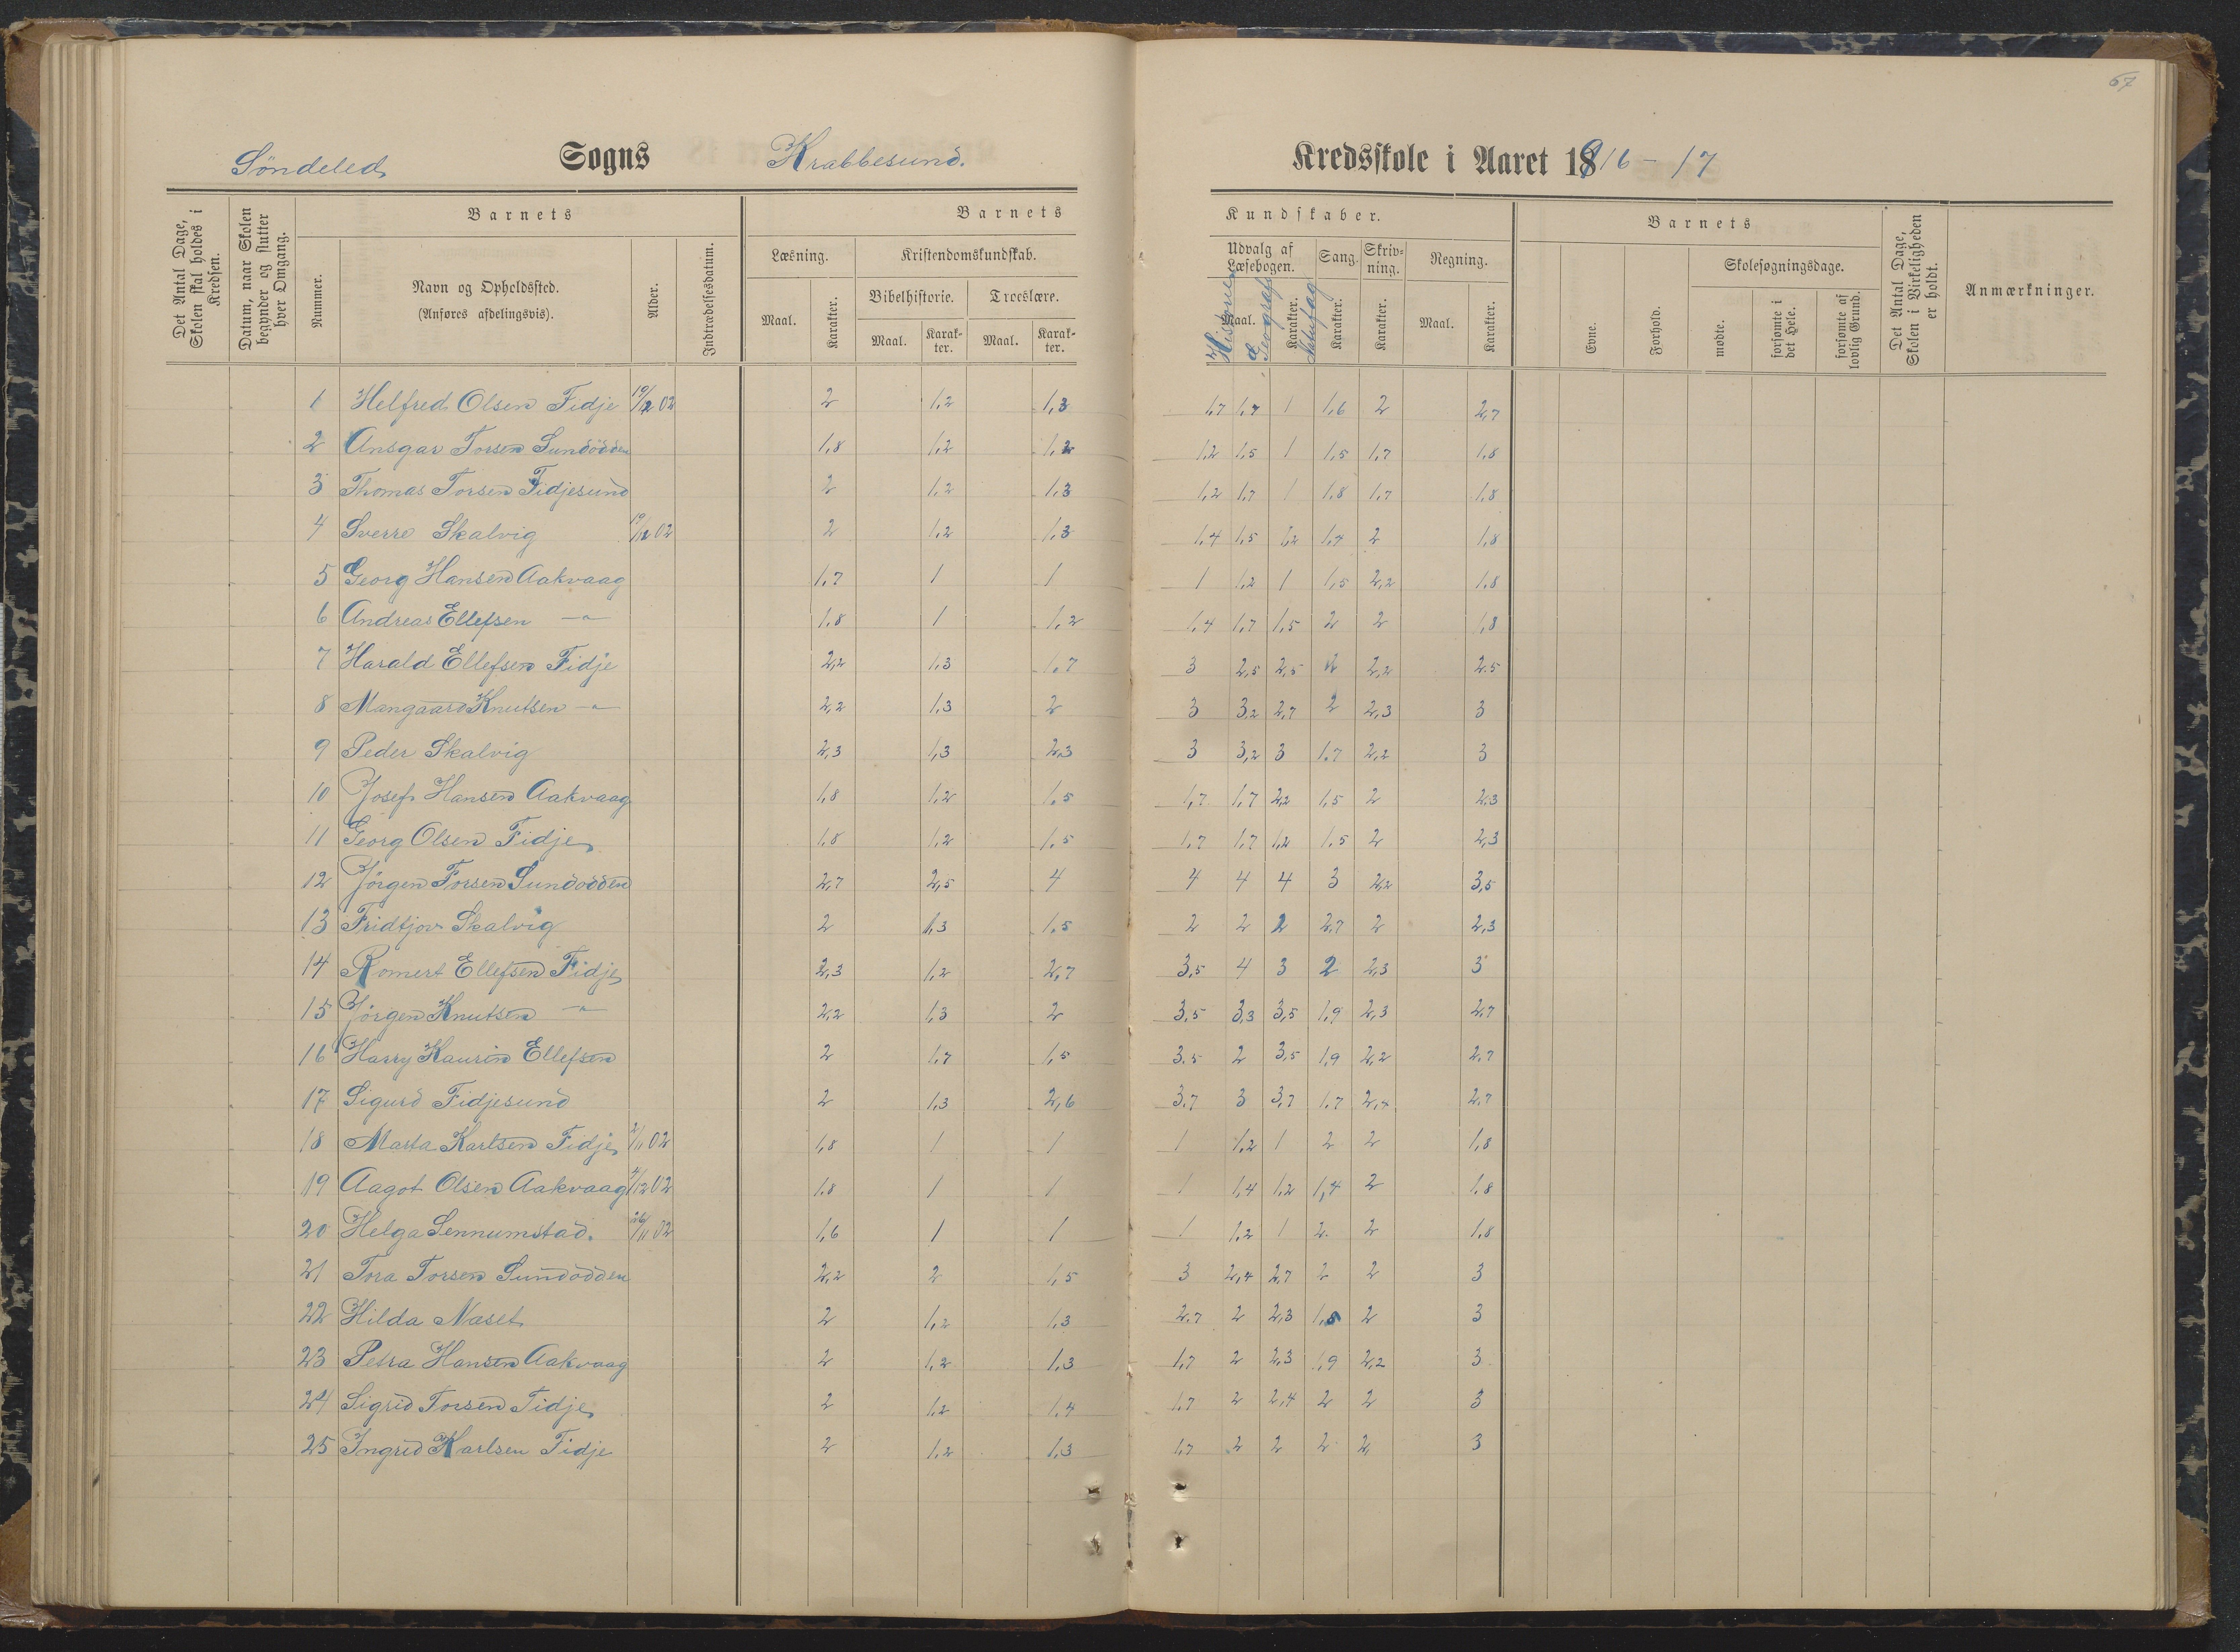 67
Söndeled Sogns Krabbesund. Kredsskole i Aaret 1916-17
Det Antal Dage, Skolen skal holdes i Kredsen.
Datum, naar Skolen begynder og slutter hver Omgang.
Barnets
Nummer.
Navn og Opholdssted.
(Anføres afdelingsvis).
Alder.
Indtrædelsesdatum.
Barnets
Læsning.
Maal.
Karakter.
Kristendomskundskab.
Bibelhistorie.
Maal.
Karakter.
Troeslære.
Maal.
Karakter.
Kundskaber.
Udvalg af Læsebogen.
Maal.
Karakter.
Historie
Geografi
Naturfag
Sang.
Karakter.
Skrivning.
Karakter.
Regning.
Maal.
Karakter.
Barnets
Evne.
Forhold.
Skolesøgningsdage.
mødte.
forsømte i det Hele.
forsømte af lovlig Grund.
Det Antal Dage, Skolen i Virkeligheden er holdt.
Anmærkninger.
1 Helfred Olsen Fidje 19/12 02 2 1,2 1,3 1,7 1,7 1 1,6 2 2,7
2 Ansgar Torsen Sundödden 1,8 1,2 1,2 1,2 1,5 1 1,5 1,7 1,8
3 Thomas Torsen Fidjesund 2 1,2 1,3 1,2 1,7 1 1,8 1,7 1,8
4 Sverre Skalvig 19/12 02 2 1,2 1,3 1,4 1,5 1,2 1,4 2 1,8
5 Georg Hansen Aakvaag 1,7 1 1 1 1,2 1 1,5 2,2 1,8
6 Andreas Ellefsen -"- 1,8 1 1,2 1,4 1,7 1,5 2 2 1,8
7 Harald Ellefsen Fidje 2,2 1,3 1,7 3 2,5 2,5 2 2,2 2.5
8 Mangaard Knutsen -"- 2,2 1,3 2 3 3,2 2,7 2 2,3 3
9 Peder Skalvig 2,3 1,3 2,3 3 3,2 3 1,7 2,2 3
10 Josef Hansen Aakvaag 1,8 1,2 1,5 1,7 1,7 2,2 1,5 2 2,3
11 Georg Olsen Fidje 1,8 1,2 1,5 1,7 1,7 1,2 1,5 2 2,3
12 Jörgen Torsen Sundodden 2,7 2,5 4 4 4 4 3 2,2 3,5
13 Fridtjov Skalvig 2 1,3 1,5 2 2 2 2,7 2 2,3
14 Romert Ellefsen Fidje 2,3 1,2 2,7 3,5 4 3 2 2,3 3
15 Jörgen Knutsen -"- 2,2 1,3 2 3,5 3,3 3,5 1,9 2,3 2,7
16 Harry Kaurin Ellefsen 2 1,7 1,5 3.5 2 3,5 1,9 2,2 2,7
17 Sigurd Fidjesund 2 1,3 2,6 3.7 3 3,7 1,7 2,4 2,7
18 Marta Karlsen Fidje 2/11 02 1,8 1 1 1 1,2 1 2 2 1,8
19 Aagot Olsen Aakvaag 4/12 02 1,8 1 1 1 1,4 1,2 1,4 2 1,8
20 Helga Sennumstad. 26/11 02 1,6 1 1 1 1,2 1 2 2 1,8
21 Tora Torsen Sundödden 2,2 2 1,5 3 2,4 2,7 2 2 3
22 Hilda Næset 2 1,2 1,3 2.7 2 2,3 1,5 2 3
23 Petra Hansen Aakvaag 2 1,2 1,3 1,7 2 2,3 1,9 2,2 3
24 Sigrid Torsen Fidje 2 1,2 1,4 1,7 2 2,4 2 2 3
25 Ingrid Karlsen Fidje 2 1,2 1,3 1,7 2 2 2 2 3